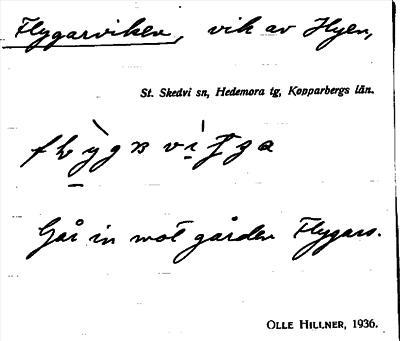 Flygarviken, vik av Hyen,
St. Skedvi sn, Hedemora tg, Kopparbergs län.
Går in mot gården Flygars.
OLLE HILLNER, 1936.